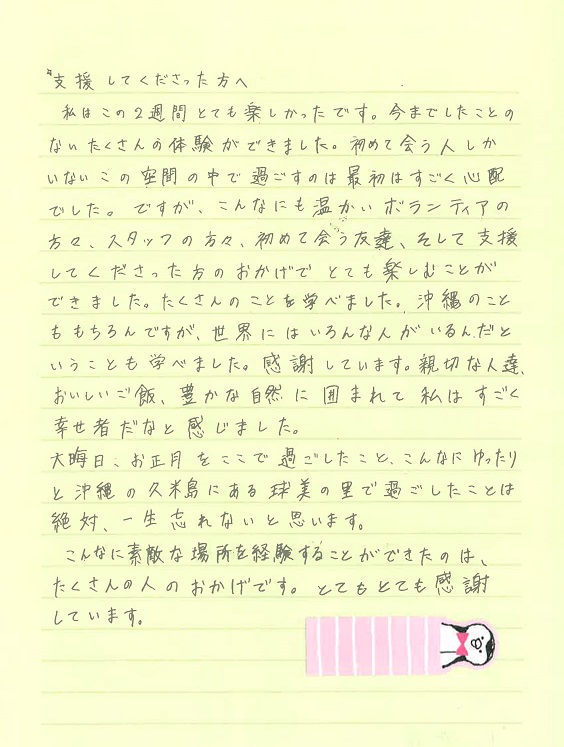 支援してくださった方へ
私はこの2週間とても楽しかったです。今までしたことの
ないたくさんの体験ができました。初めて会う人しか
いないこの空間の中で過ごすのは最初はすごく心配
でした。ですが、こんなにも温かいボランティアの
方々、スタッフの方々、初めて会う友達、そして支援
してくださった方のおかげでとても楽しむことが
できました。たくさんのことを学べました。沖縄のこと
ももちろんですが、世界にはいろんな人がいるんだと
いうことも学べました。感謝しています。親切な人達、
おいしいご飯、豊かな自然に囲まれて私はすごく
幸せ者だなと感じました。
大晦日、お正月をここで過ごしたこと、こんなにゆったり
と沖縄の久米島にある球美の里で過ごしたことは
絶対、一生忘れないと思います。
こんなに素敵な場所を経験することができたのは、
たくさんの人のおかげです。とてもとても感謝
しています。